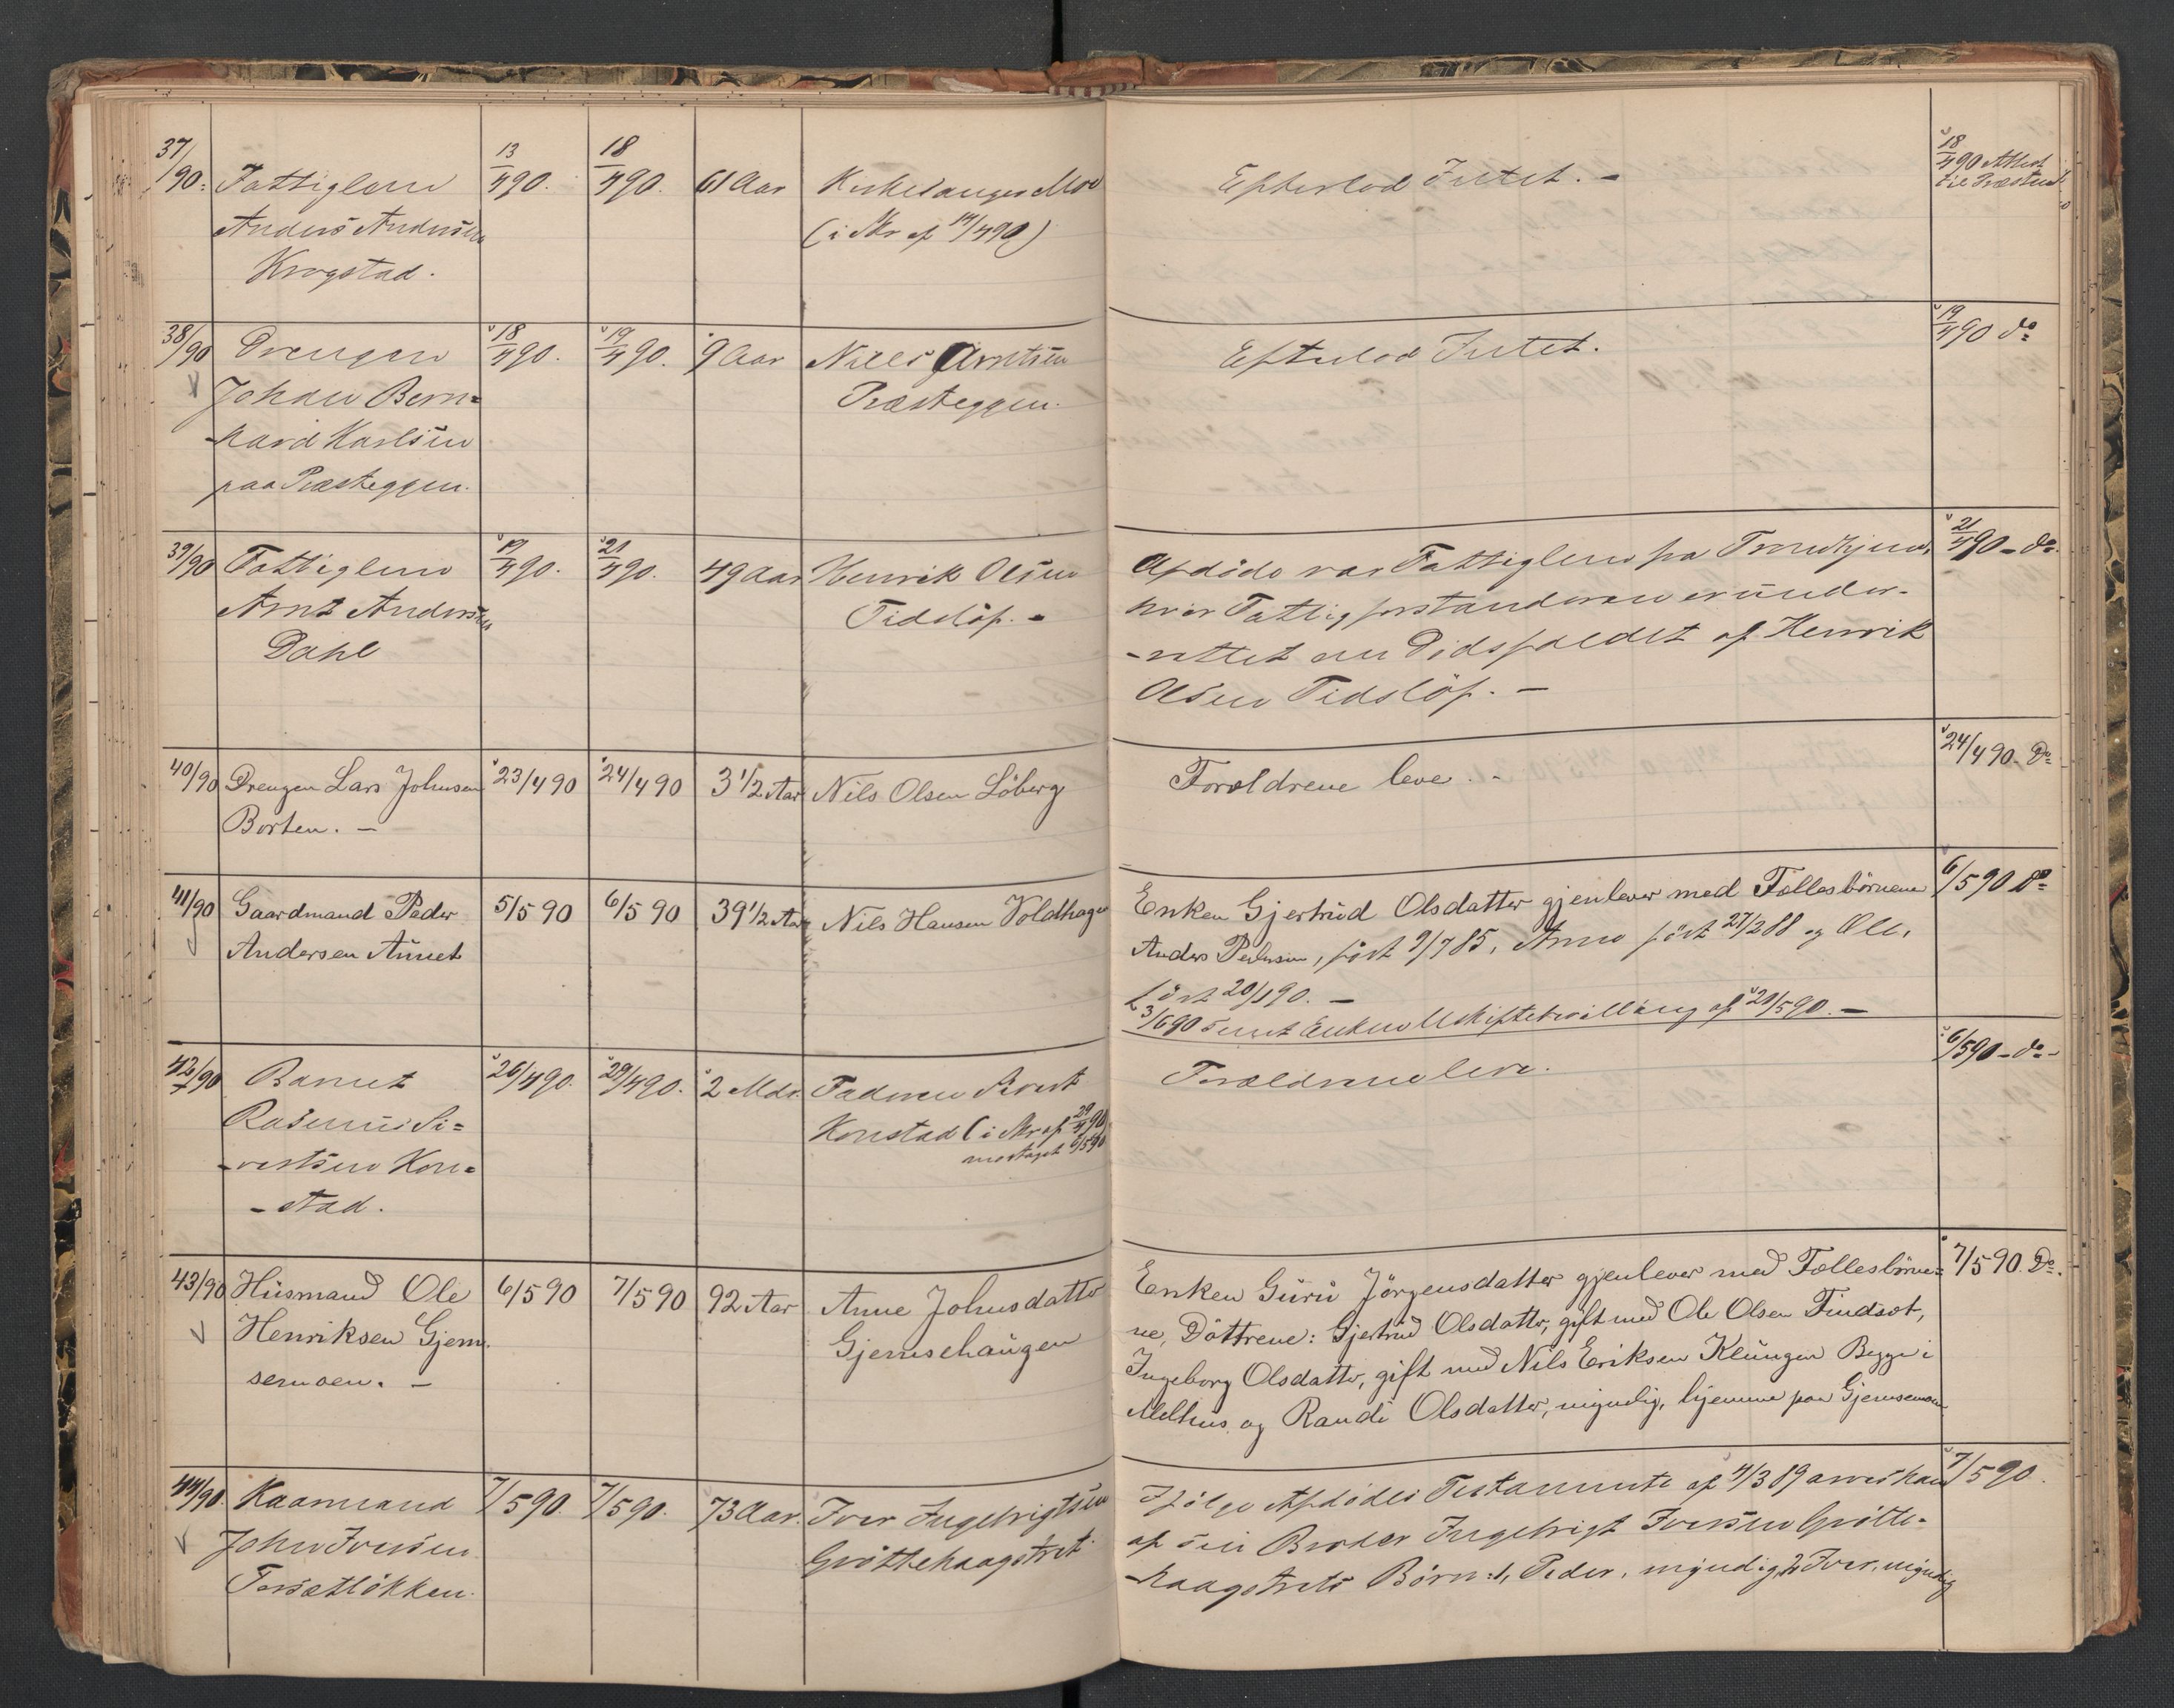 37/90. Fattiglem 13/4 90. 18/4 90. 61 Aar Kirkesanger Moe Efterlod Intet. - 18/4 90 Attest
Anders Andersen (i Skr af 14/4 90) til Præsten
Krogstad.
38/90 Drengen 18/4 90. 19/4 90. 9 Aar Niels Arntsen Efterlod Intet. 19/4 90 do
Johan Bern=
hard Karlsen Præsteggen.
paa Præsteggen.
39/90 Fattiglem 19/4 90. 21/4 90. 49 Aar Henrik Olsen Afdöde var Fattiglem fra Trondhjem, 21/4 90 - do.
Arnt Andersen Tidslöf. - hvor Fattigforstanderen er under-
Dahl -rettet om Dödsfaldet af Henrik
Olsen Tidslöf. -
40/90 Drengen Lars Johnsen 23/4 90 24/4 90 3 1/2 Aar Nils Olsen Löberg Forældrene leve. - 24/4 90. Do
Borten. -
41/90 Gaardmand Peder 5/5 90 6/5 90 39 1/2 Aar Nils Hansen Voldhagen Enken Gjertrud Olsdatter gjenlever med Fællesbörnene 6/5 90 Do
Andersen Aunet Anders Pedersen, födt 9/7 85, Arne födt 27/2 88 og Ole,
födt 20/1 90. -
3/6 90 sendt Enken Uskiftebevilling af 21/5 90. -
42/90 Barnet 26/4 90. 29/4 90. 2 Mdr. Faderen Sivert Forældrene leve. 6/5 90 - do -
Rasmus Si= Konstad (i Skr af 29/4 90,
-vertsen Kon= modtaget 6/5 90
-stad.
43/90 Husmand Ole 6/5 90 7/5 90 92 Aar Anne Johnsdatter Enken Guru Jörgensdatter gjenlever med Fællesbörne= 7/5 90. Do.
Henriksen Gjem. Gjemsehaugen ne, Döttrene: Gjertrud Olsdatter, gift med Ole Olsen Tindset,
semoen. - Ingeborg Olsdatter, gift med Nils Eriksen Klungen Begge i
Melhus, og Randi Olsdatter, myndig, hjemme paa Gjemsemoen
44/90. Kaarmand 7/5 90. 7/5 90. 73 Aar. Iver Ingebrigtsen Ifölge Afdödes Testamente af 4/3 89 arves han 7/5 90.
John Iversen Gröttehaagstret af sin Broder Ingebrigt Iversen Grötte-
Forsætlökken. -haagstrets Börn: 1, Peder, myndig, 2, Iver, myndig